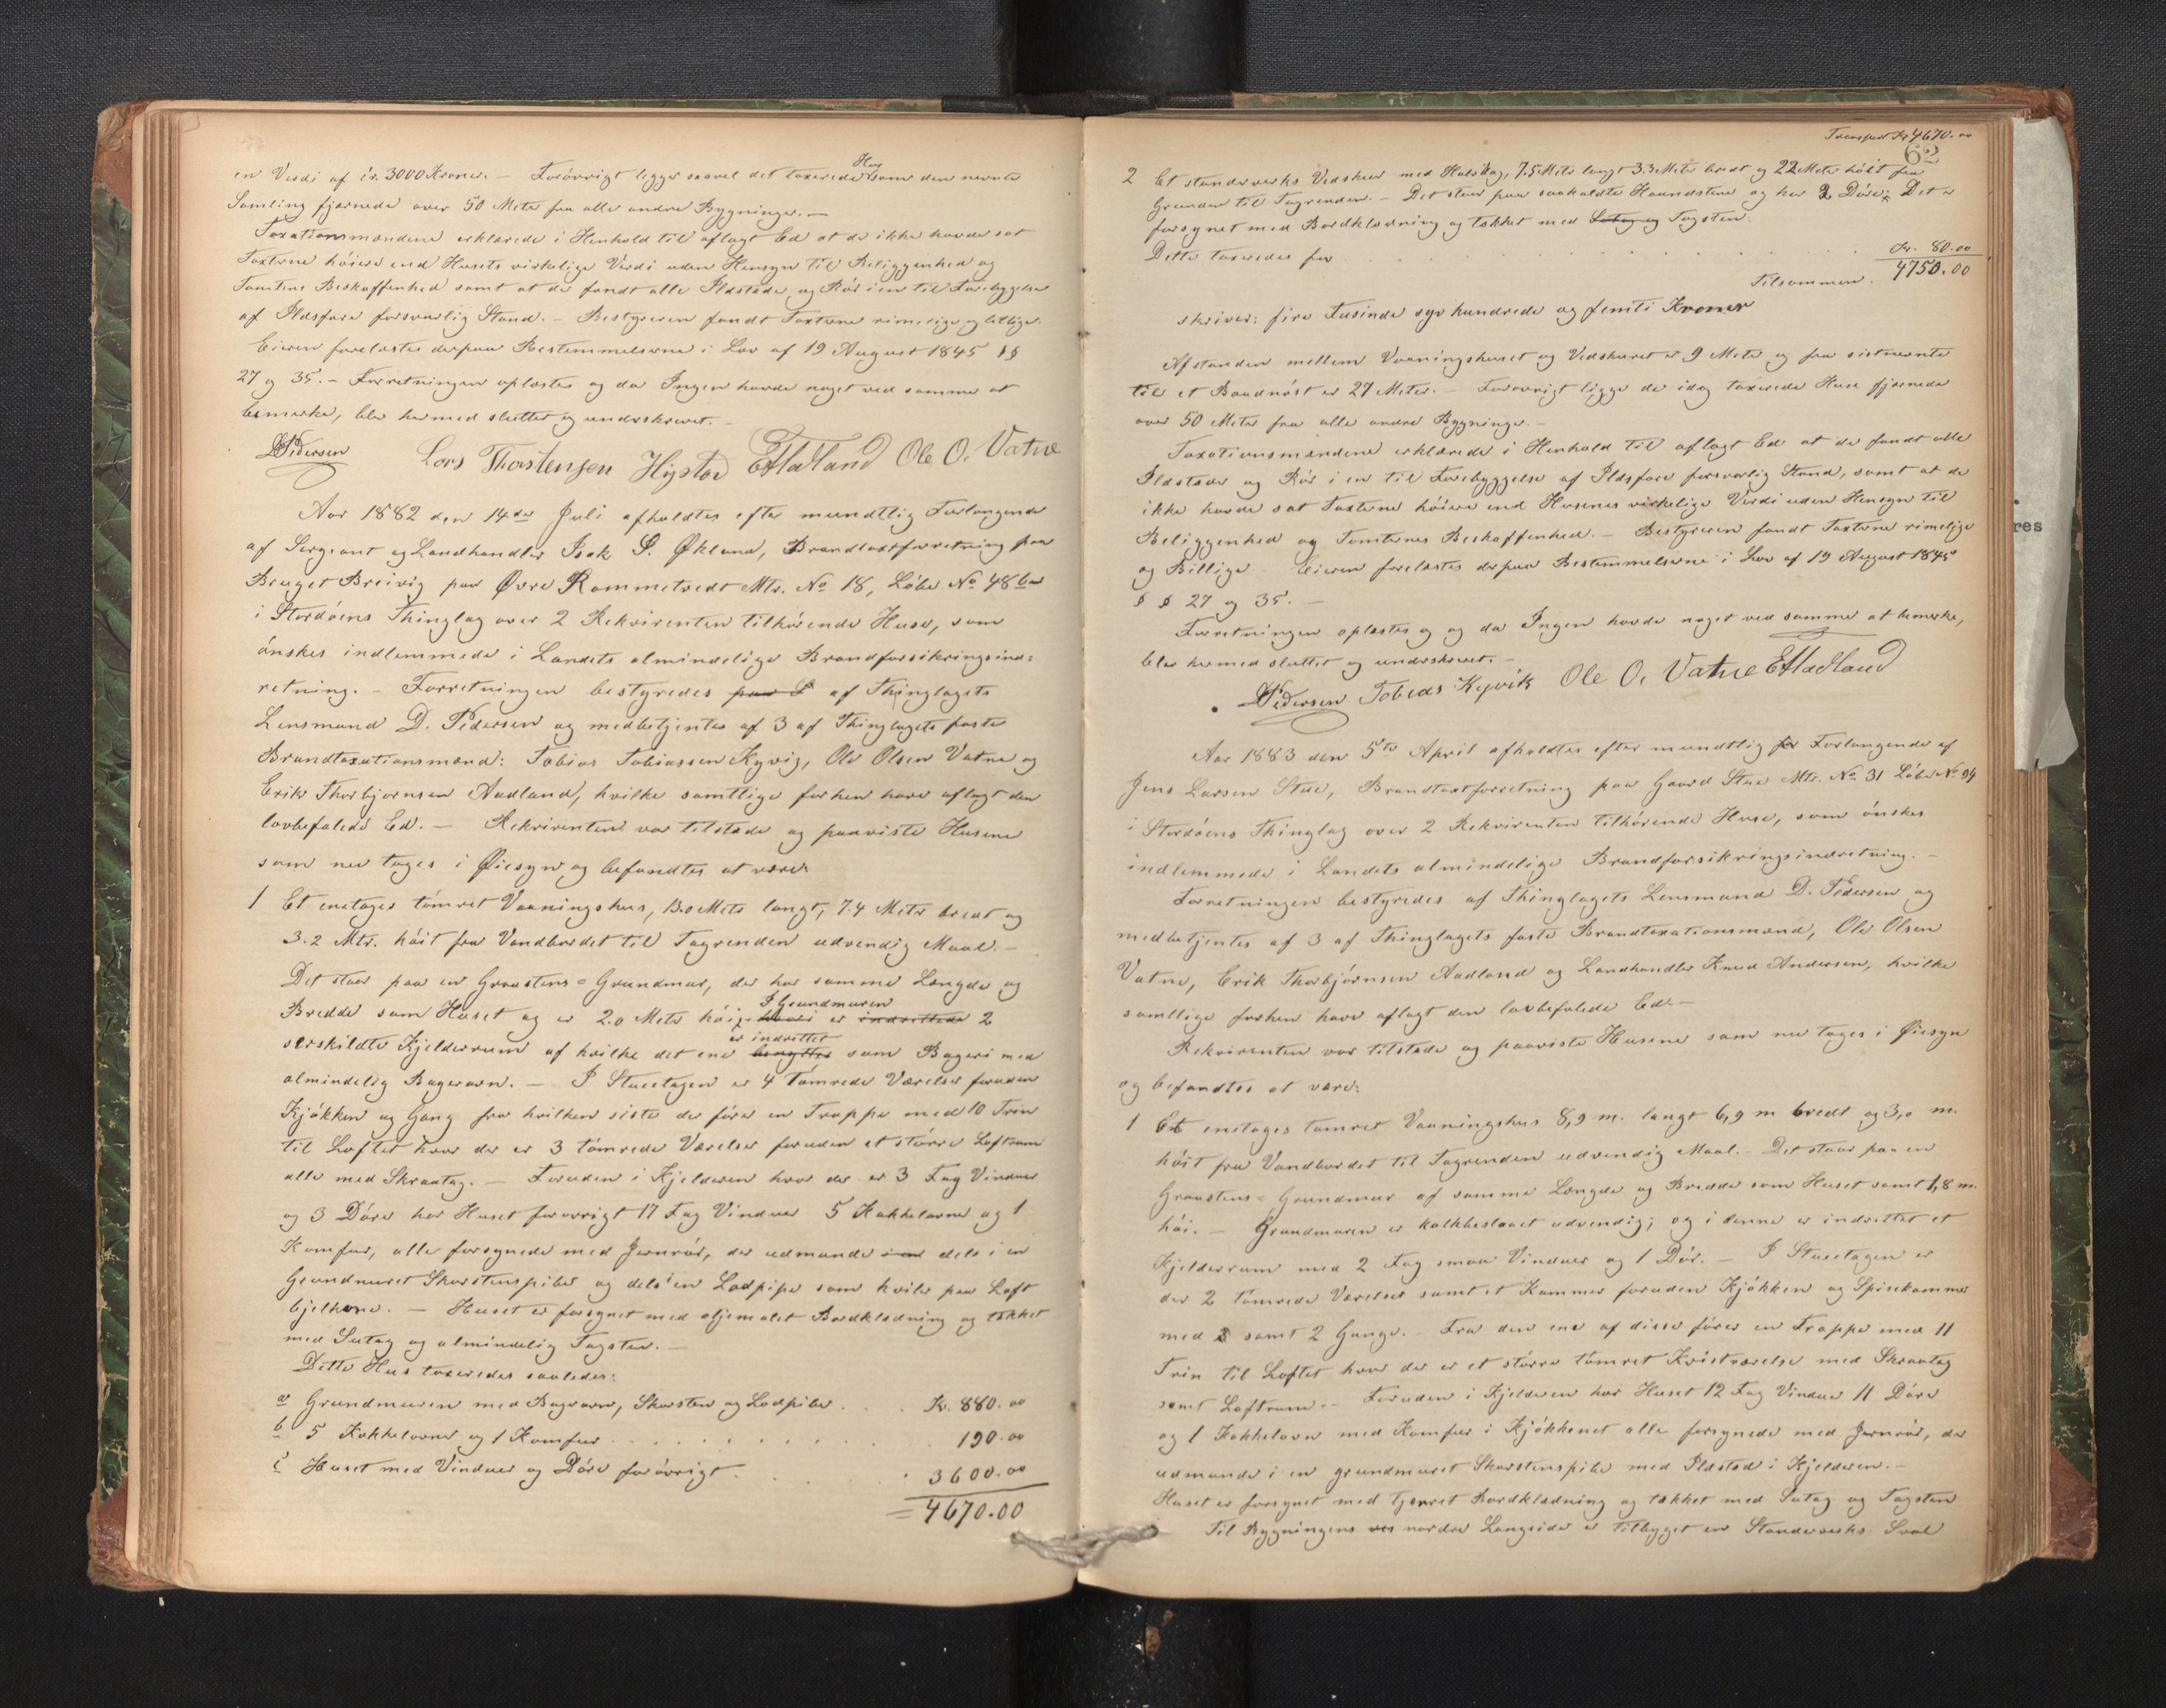 en Verdi af ca. 3000 Kroner. — Forøvrigt ligger saavel det taxerede Hus som den nevnte
Samling fjærnede over 50 Meter fra alle andre Bygninger. —
Taxationsmændene erklærede i Henhold til aflagt Ed at de ikke havde sat
Taxterne höiere end Husets virkelige Verdi uden Hensyn til Beliggenhed og
Tomtens Beskaffenhed samt at de fandt alle Ildsteder og Rör i en til Forebyggelse
af Ildsfare forsvarlig Stand. — Bestyreren fandt Taxterne rimelige og billige.
Eieren forelæstes derpaa Bestemmelserne i Lov af 19 August 1845 §§
27 og 35. — Forretningen oplæstes og da Ingen havde noget ved samme at
bemærke, blev hermed sluttet og underskrevet. —
DPedersen Lars Thorstensen Hystad EAadland Ole O. Vatne
Aar 1882 den 14de Juli afholdtes efter mundtlig Forlangende
af Sergeant og Landhandler Isak S. Økland, Brandtaxtforretning paa
Bruget Breivig paa Øvre Rommetvedt Mtr. No 18, Löbe No 48 ba
i Stordöens Thinglag over 2 Rekvirenten tilhörende Huse, som
önskes indlemmede i Landets almindelige Brandforsikringsind=
retning. — Forretningen bestyredes paa S af Thinglagets
Lensmand D. Pedersen og medbetjentes af 3 af Thinglagets faste
Brandtaxationsmænd: Tobias Tobiassen Kyvig, Ole Olsen Vatne og
Erik Thorbjørnsen Aadland, hvilke samtlige forhen have aflagt den
lovbefalede Ed. — Rekvirenten var tilstede og paaviste Husene
som nu toges i Øiesyn og befandtes at være:
1 Et enetages tömret Vaaningshus, 13.0 Meter langt, 7.4 Meter bredt og
3.2 Mtr. höit fra Vandbordet til Tagrenden udvendig Maal. —
Det staar paa en Graastens=Grundmur, der har samme Længde og
Bredde som Huset og er 2.0 Meter höi, hvori I Grundmuren er indrettede 2
særskildte Kjelderrum af hvilke det ene benyttes er indrettet som Bageri med
almindelig Bagerovn. — I Stueetagen er 4 Tömrede Værelser foruden
Kjökken og Gang fra hvilken siste der förer en Trappe med 10 Trin
til Loftet hvor der er 3 tömrede Værelser foruden et större Loftrum
alle med Skraatag. — Foruden i Kjelderen hvor der er 3 Fag Vinduer
og 3 Döre har Huset forøvrigt 17 Fag Vinduer 5 Kakkelovne og 1
Komfur, alle forsynede med Jernrör, der udmunde i en dels i en
Grundmuret Skorstenspibe og dels i en Lodpipe som hviler paa Loft
bjelkerne. — Huset er forsynet med oljemalet Bordklædning og tækket
med Sutag og almindelig Tagsten. —
Dette Hus taxeredes saaledes:
a Grundmuren med Bagerovn, Skorsten og Lodpibe . . . Kr. 880.00
b 5 Kakkelovne og 1 Komfur . . . . . . . . . 190.00
c Huset med Vinduer og Döre forövrigt . . . . . 3600.00
= 4670.00
Transport Kr 4670.00
62
2 Et standerverks Vedskur med Halvtag, 7.5 Meter langt 3.3 Meter bredt og 2.2 Meter höit fra
Grunden til Tagrenden. — Det staar paa saakaldte Haandstene og har 2 Döre. Det er
forsynet med Bordklædning og tækket med Sutag og Tagsten.
Dette taxeredes for . . . . . . . . . Kr. 80.00
Tilsammen. 4750.00
skriver: fire Tusinde syv hundrede og femti Kroner
Afstanden mellem Vaaningshuset og Vedskuret er 9 Meter og fra sistnævnte
til et Baadnöst er 27 Meter. — Forøvrigt ligge de idag taxerede Huse fjærnede
over 50 Meter fra alle andre Bygninger. —
Taxationsmændene erklærede i Henhold til aflagt Ed at de fandt alle
Ildsteder og Rör i en til Forebyggelse af Ildsfare forsvarlig Stand, samt at de
ikke havde sat Taxterne höiere end Husenes virkelige Verdi uden Hensyn til
Beliggenhed og Tomternes Beskaffenhed. — Bestyreren fandt Taxterne rimelige
og Billige — Eieren forelæstes derpaa Bestemmelserne i Lov af 19 August 1845
§ § 27 og 35. —
Forretningen oplæstes og og da Ingen havde noget ved samme at bemærke,
blev hermed sluttet og underskrevet. —
DPedersen Tobias Kyvik Ole O. Vatne EAadland
Aar 1883 den 5te April afholdtes efter mundtlig for Forlangende af
Jens Larsen Stue, Brandtaxtforretning paa Gaard Stue Mtr. No 31 Löbe No 94
i Stordöens Thinglag over 2 Rekvirenten tilhörende Huse, som önskes
indlemmede i Landets almindelige Brandforsikringsindretning. —
Forretningen bestyredes af Thinglagets Lensmand D. Pedersen og
medbetjentes af 3 af Thinglagets faste Brandtaxationsmænd, Ole Olsen
Vatne, Erik Thorbjörnsen Aadland og Landhandler Knud Andersen, hvilke
samtlige forhen have aflagt den lovbefalede Ed. —
Rekvirenten var tilstede og paaviste Husene som nu toges i Öiesyn
og befandtes at være:
1 Et enetages tömret Vaaningshus 8,9 m. langt 6,9 m bredt og 3,0 m.
höit fra Vandbordet til Tagrenden udvendig Maal. — Det staar paa en
Graastens=Grundmur af samme Længde og Bredde som Huset samt 1,8 m.
höi. — Grundmuren er kalkbeslaaet udvendig; og i denne er indrettet et
Kjelderrum med 2 Fag smaa Vinduer og 1 Dör. — I Stueetagen er
der 2 tömrede Værelser samt et Kammer foruden Kjökken og Spisekammer
med 2 samt 2 Gange. — Fra den ene af disse förer en Trappe med 11
Trin til Loftet hvor der er et större tömret Kvistværelse med Skraatag
samt Loftrum. — Foruden i Kjelderen har Huset 12 Fag Vinduer 11 Döre
og 1 Kakkelovn med Komfur i Kjökkenet alle forsynede med Jernrör, der
udmunde i en grundmuret Skorstenspibe med Ildsted i Kjelderen. —
Huset er forsynet med tjæret Bordklædning og tækket med Sutag og Tagsten
Til Bygningens ves nordre Langside er tilbygget en Standerverks Sval
res